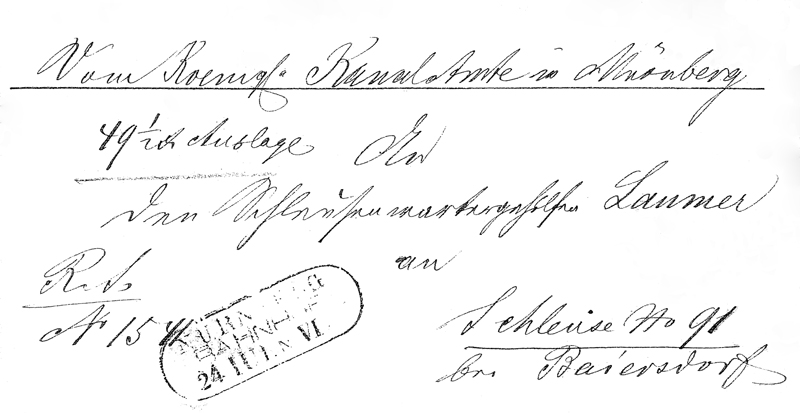 Vom Koenigl. Kanal Amte in Nürnberg
49 1/2 Auslage
An
den Schleusenwartergehülfen Laumer
an
R. S.
No 15
NÜRNBERG
BAHNHOF
24 VI
Schleuse No 91
bei Baiersdorf